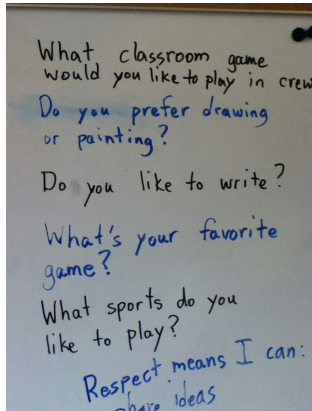 What classroom game
would you like to play in crew
Do you prefer drawing
or painting?
Do you like to write?
What's your favorite
game?
What sports do you
like to play?
Respect means I can:
share ideas